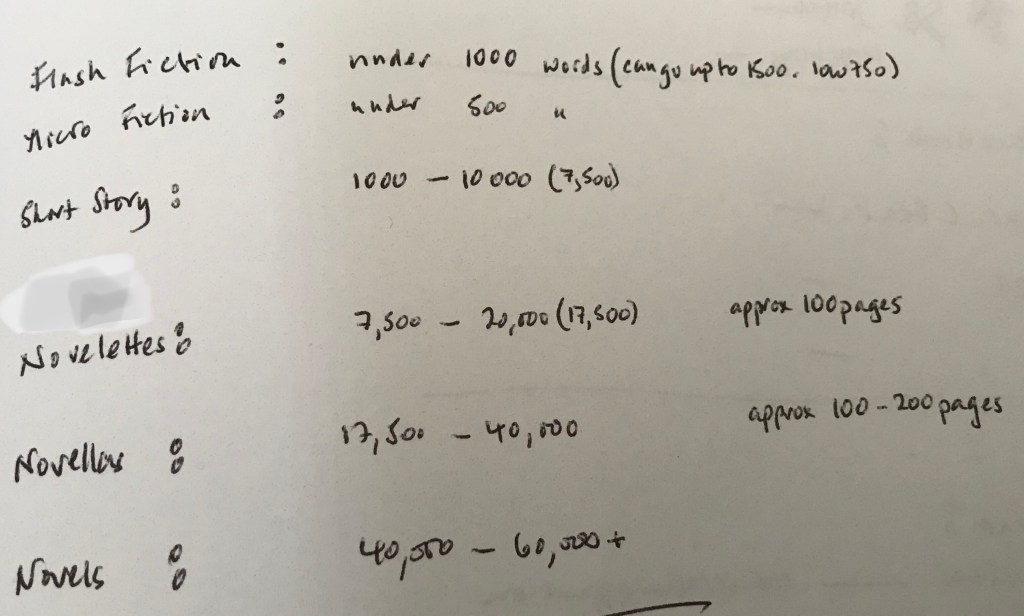 Flash Fiction : under 1000 words (can go up to 1500. low 750)
Micro Fiction : under 500 "
Short Story : 1000 – 10 000 (7,500)
Novelettes : 7,500 – 20,000 (17,500) approx 100 pages
Novellas : 17,500 – 40,000 approx 100 – 200 pages
Novels : 40,000 – 60,000 +